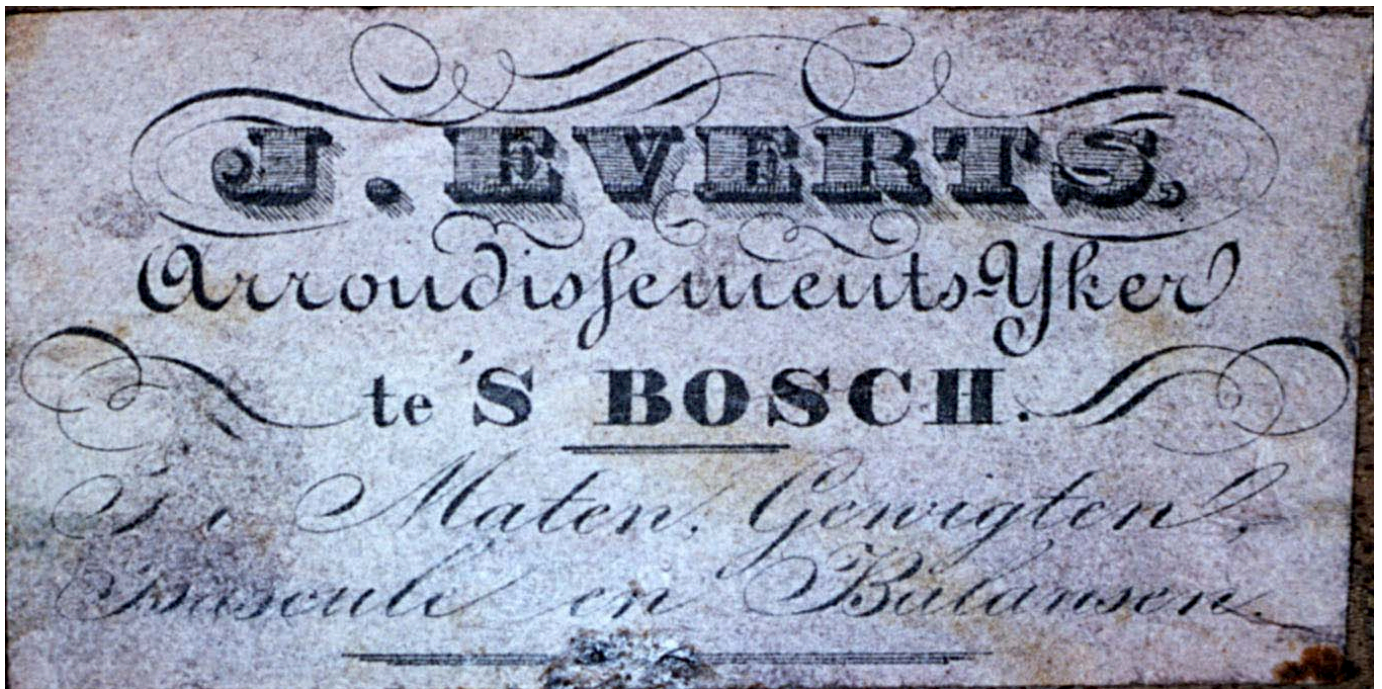 J. EVERTS,
Arrondissements-Yker
te 'S BOSCH.
Maten, Gewigten,
Bascule en Balansen.